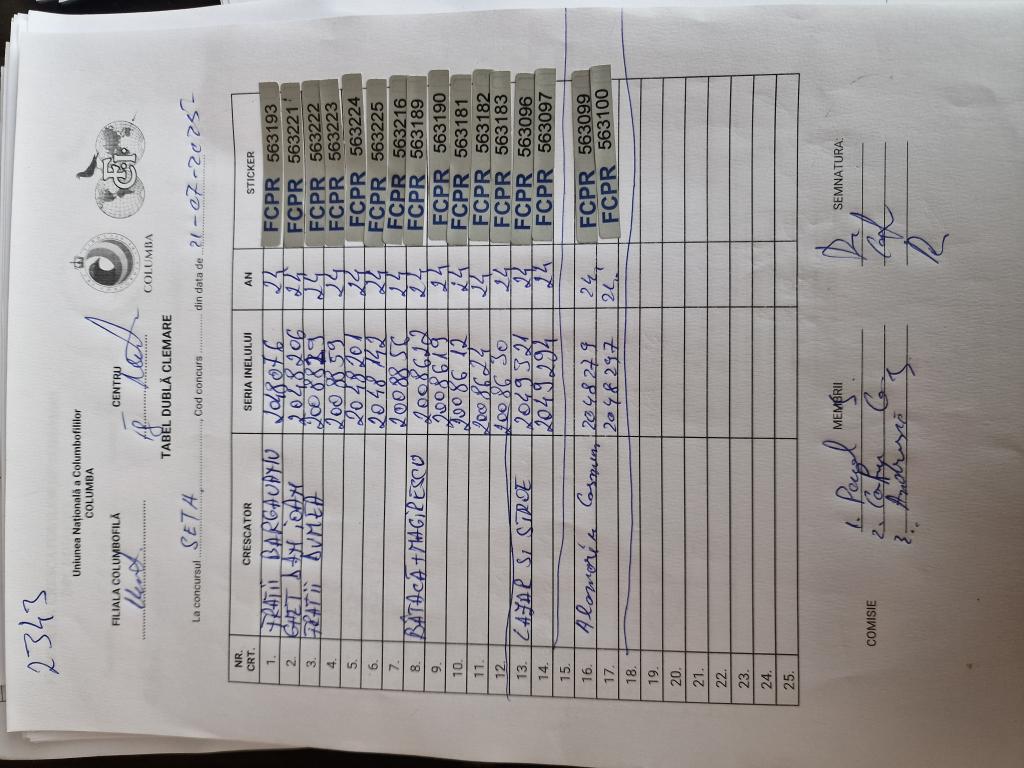 2343
Uniunea Națională a Columbofililor
COLUMBA
COLUMBA
FILIALA COLUMBOFILĂ
CENTRU
TABEL DUBLĂ CLEMARE
La concursul SETA, Cod concurs din data de 21-07-2025-
NR. CRT. CRESCATOR SERIA INELULUI AN STICKER
1. FRATII BARGAUANU 2048076 24 FCPR 563193
2. 2048206 24 FCPR 563221
3. FRATII DUMEA 2008829 24 FCPR 563222
4. 2008859 24 FCPR 563223
5. 2048201 24 FCPR 563224
6. 2048142 24 FCPR 563225
7. 2008856 24 FCPR 563216
8. BATACĂ+MAGIRESCU 2008622 24 FCPR 563189
9. 2008619 24 FCPR 563190
10. 2008612 24 FCPR 563181
11. 2008624 24 FCPR 563182
12. 2008630 24 FCPR 563183
13. LAZAR SI STROE 2049321 24 FCPR 563096
14. 2049294 24 FCPR 563097
15.
16. 2048279 24 FCPR 563099
17. 2048297 24 FCPR 563100
18.
19.
20.
21.
22.
23.
24.
25.
COMISIE MEMBRII SEMNATURA:
1.
2.
3.